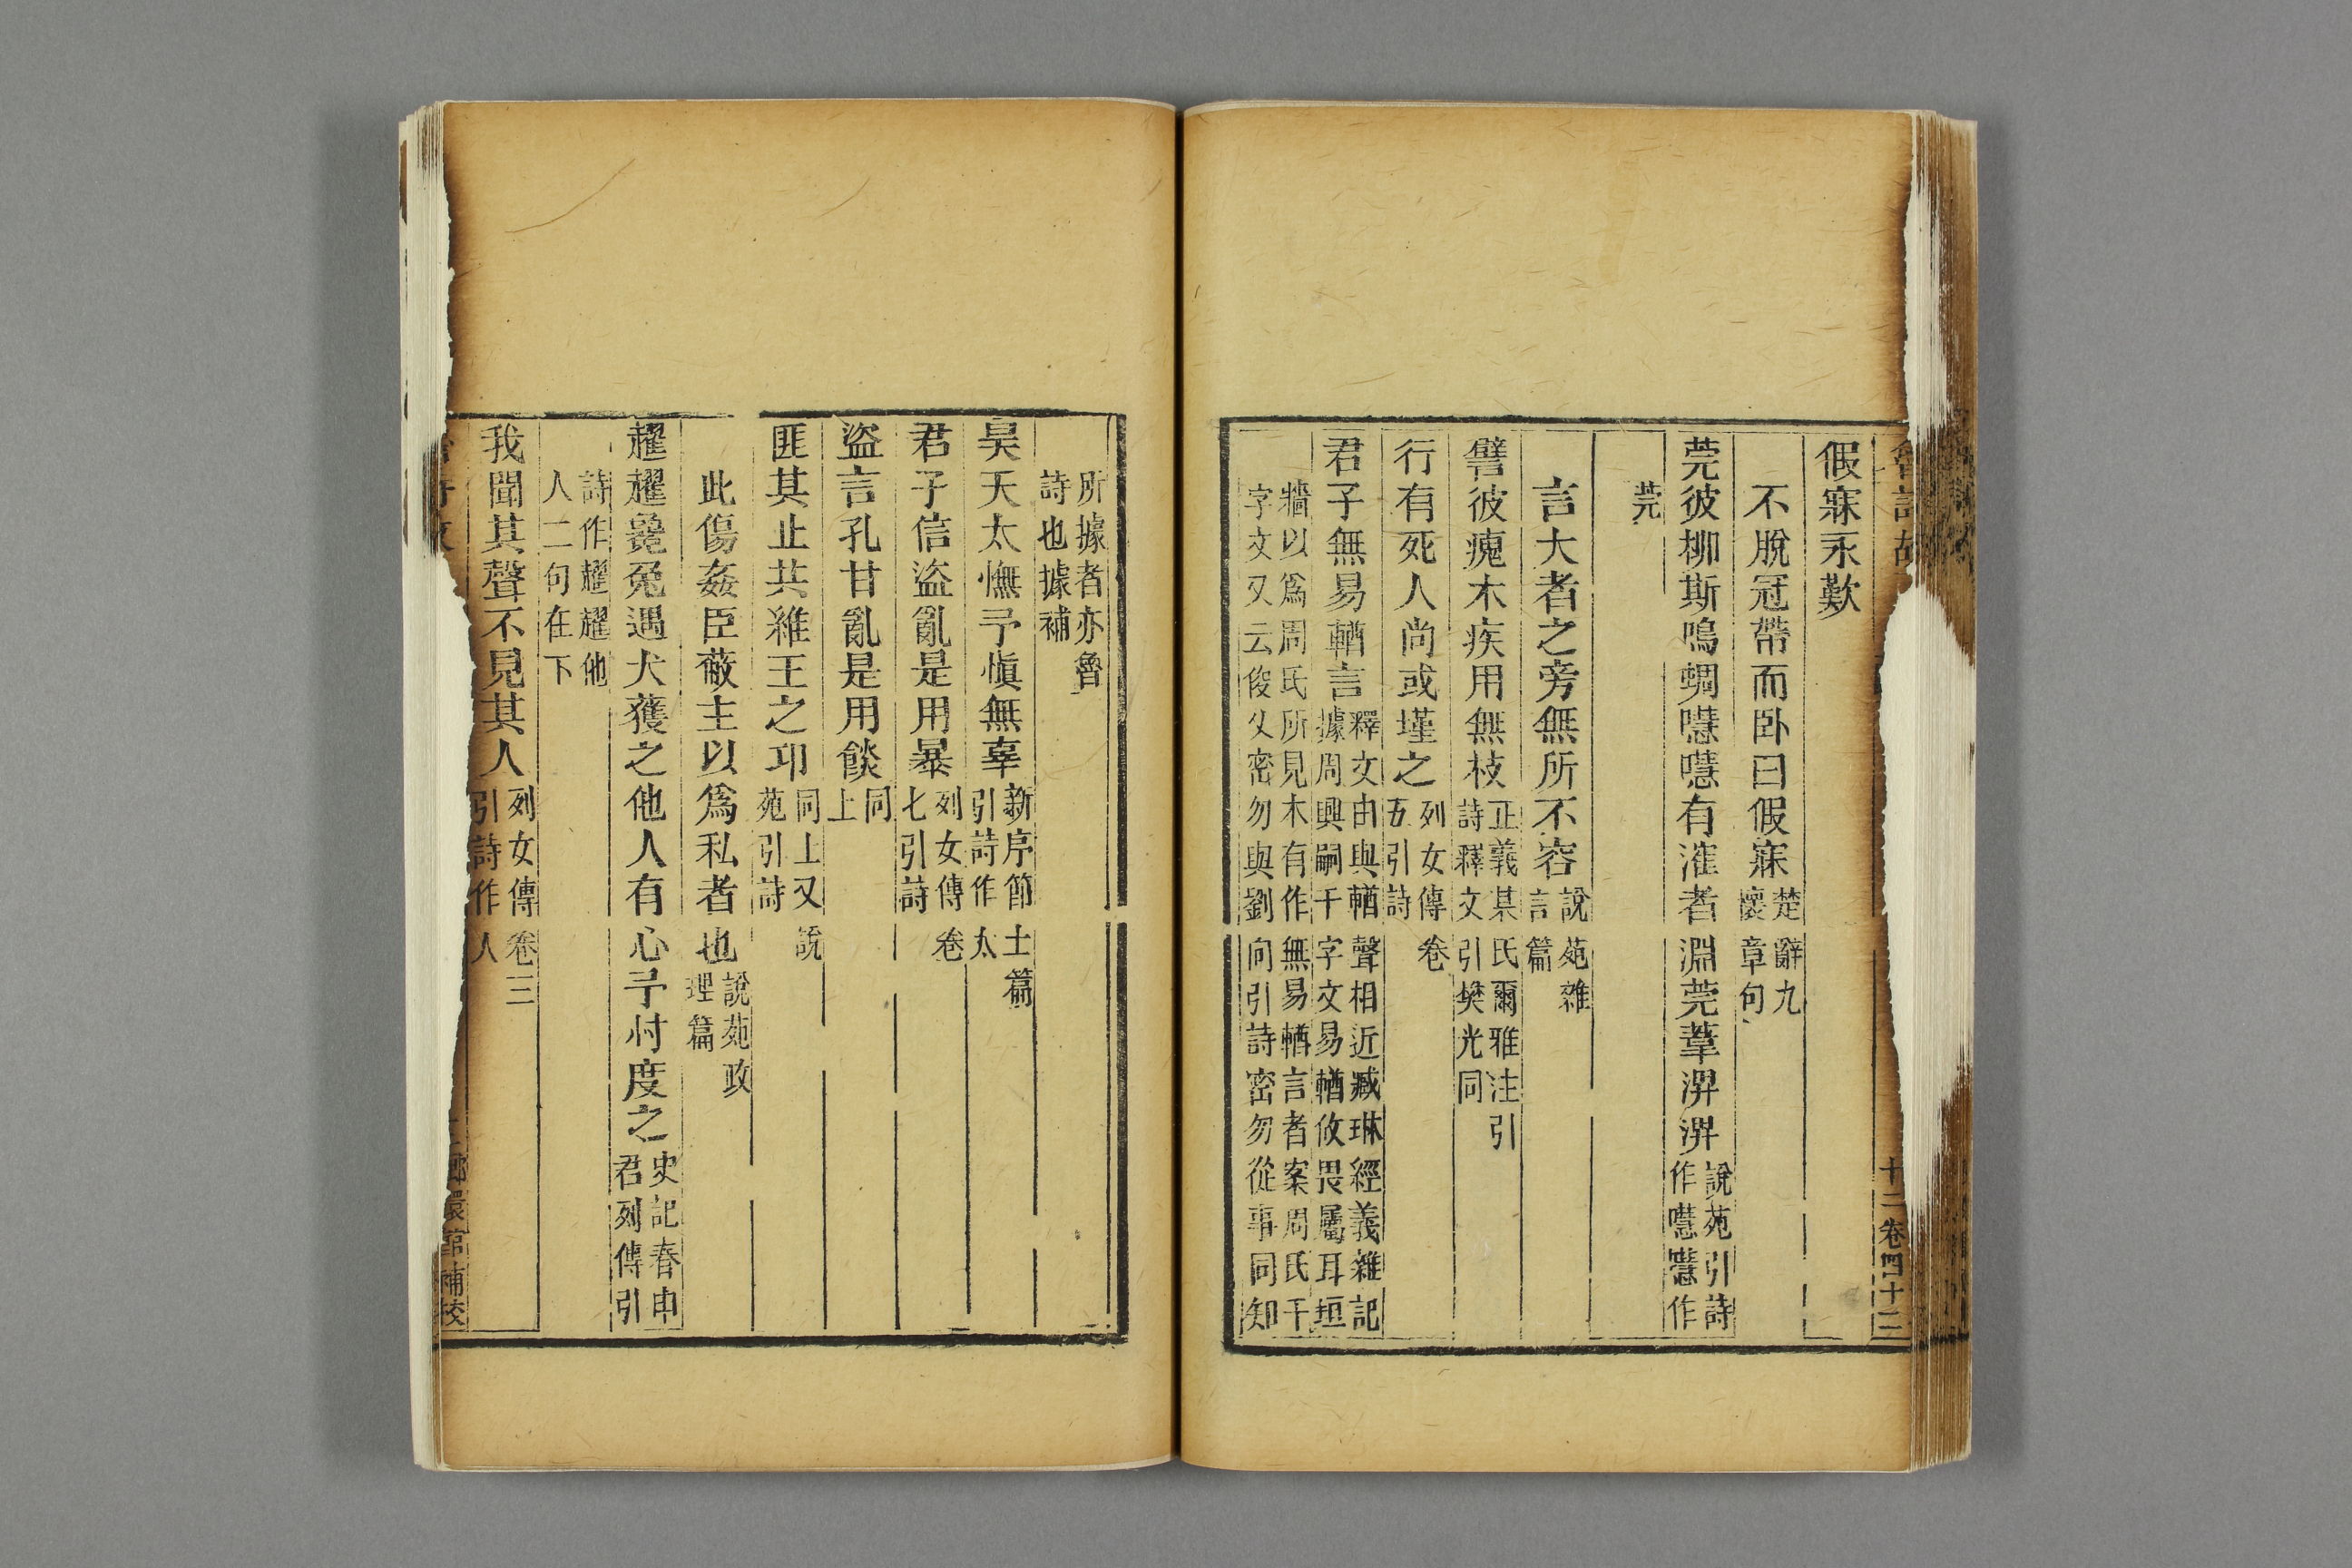 魯詩故
十二 卷四十三
假寐永歎
不脫冠帶而卧曰假寐楚辭九懷章句
莞彼柳斯鳴蜩嚖嚖有漼者淵莞葦淠淠說苑引詩作嚖嚖作
莞
言大者之旁無所不容說苑雜言篇
譬彼瘣木疾用無枝正義某氏爾雅注引詩釋文引樊光同
行有死人尚或墐之列女傳卷五引詩
君子無易輶言釋文由與輶聲相近臧琳經義雜記據周興嗣千字文易輶攸畏屬耳垣
牆以爲周氏所見本有作無易輶言者案周氏千字文又云俊乂密勿與劉向引詩密勿從事同知
所據者亦魯詩也據補
昊天太憮予愼無辜新序節士篇引詩作太
君子信盜亂是用暴列女傳卷七引詩
盜言孔甘亂是用餤同上
匪其止共維王之卭同上又說苑引詩
此傷姦臣蔽主以爲私者也說苑政理篇
趯趯毚兔遇犬獲之他人有心予忖度之史記春申君列傳引
詩作趯趯他人二句在下
我聞其聲不見其人列女傳卷三引詩作人
嫏嬛館補校